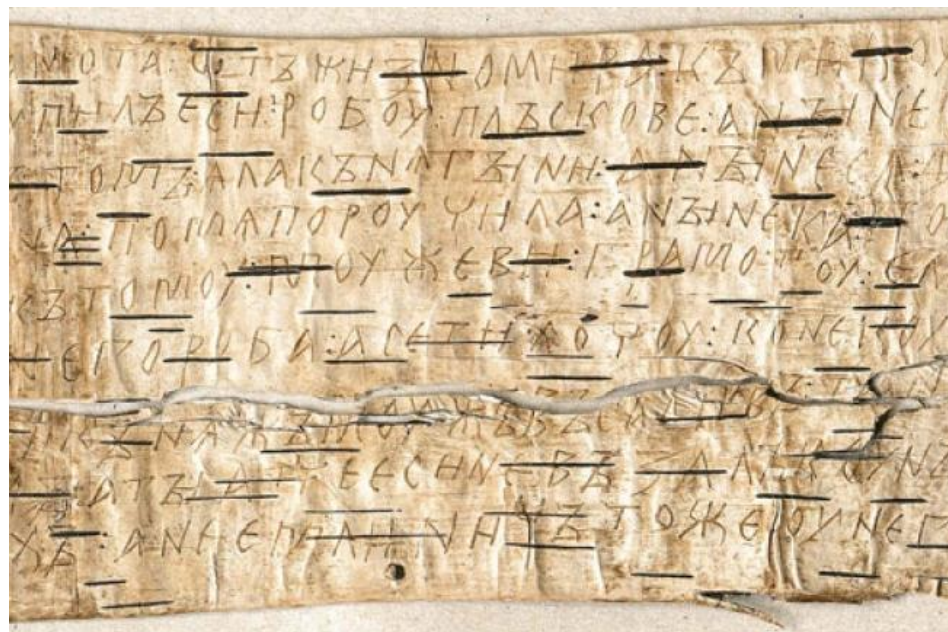 МОТА : ѠТЪ ЖИЗНОМИРА : КЪ МИКОУ
ОУПИЛЪ ЕСИ : РОБОУ : ПЛЪСКОВЕ : А НЫНЕ
ЪТОМЪ : ѦЛА КЪНѦГЫНИ : А НЫНЕ СѦ :
НА : ПО МѦ ПОРОУЧИЛА : А НЫНЕ КА : ПО
КЪ ТОМОУ : МОУЖЕВИ : ГРАМОТОУ : ЕЛ
НЕГО РОБА : А СЕ ТИ ХОЧОУ : КОНЕ КОУ
КЪНѦЖЪ МОУЖЪ ВЪСА
А ТЫ АТЧЕ ЕСИ НЕ ВЪЗАЛЪ КОУНЪ
ХЪ : А НЕ ЕМЛИ : НИЧЪТОЖЕ ОУ НЕГ